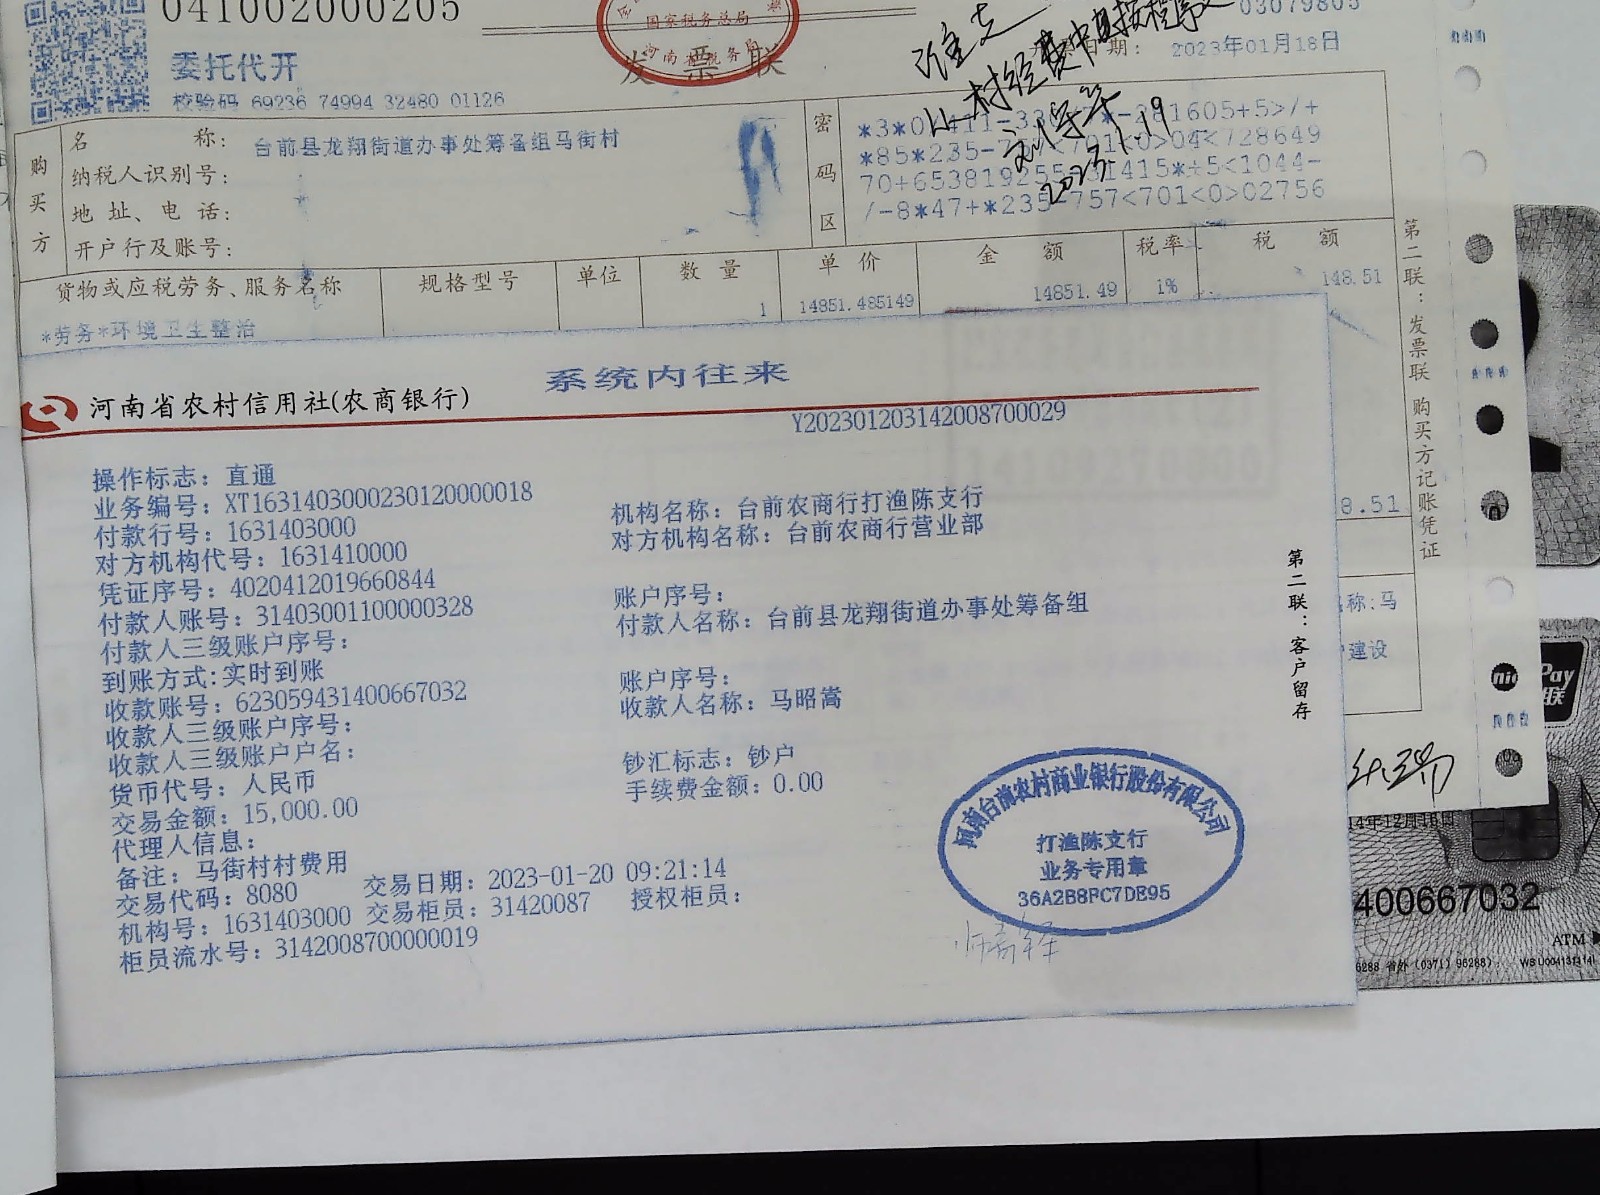 041002000205
国家税务总局
河南省税务局
发票联
03079805
委托代开
校验码 69236 74994 32480 01126
日期: 2023年01月18日
准支
刘学军
2023.1.19
购买方
名称: 台前县龙翔街道办事处筹备组马街村
纳税人识别号:
地址、电话:
开户行及账号:
密码区
*85*235-7
04<728649
70+653819255
31415*+5<1044-
/-8*47+*235-757<701<0>02756
货物或应税劳务、服务名称 规格型号 单位 数量 单价 金额 税率 税额
*劳务*环境卫生整治 1 14851.485149 14851.49 1% 148.51
第二联:发票联 购买方记账凭证
8.51
称:马
建设
河南省农村信用社(农商银行)
系统内往来
Y202301203142008700029
操作标志: 直通
业务编号: XT1631403000230120000018
机构名称: 台前农商行打渔陈支行
付款行号: 1631403000
对方机构名称: 台前农商行营业部
对方机构代号: 1631410000
凭证序号: 4020412019660844
账户序号:
付款人账号: 31403001100000328
付款人名称: 台前县龙翔街道办事处筹备组
付款人三级账户序号:
到账方式:实时到账
账户序号:
收款账号: 623059431400667032
收款人名称: 马昭嵩
收款人三级账户序号:
收款人三级账户户名:
钞汇标志: 钞户
货币代号: 人民币
手续费金额: 0.00
交易金额: 15,000.00
代理人信息:
备注: 马街村村费用
交易代码: 8080 交易日期: 2023-01-20 09:21:14
机构号: 1631403000 交易柜员: 31420087 授权柜员:
柜员流水号: 3142008700000019
第二联:客户留存
河南台前农村商业银行股份有限公司
打渔陈支行
业务专用章
36A2B8FC7DE95
14年12月16日
400667032
ATM
6288 省外 (0371) 96288)
Pay
联